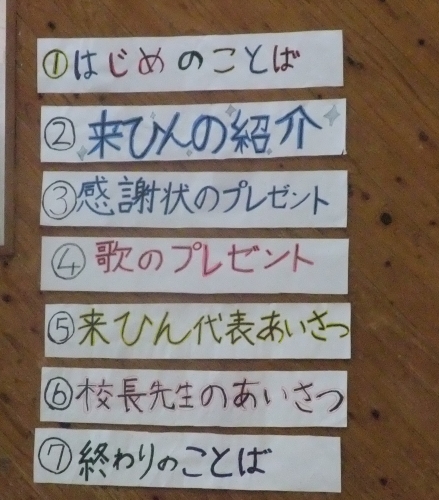 ①はじめのことば
②来ひんの紹介
③感謝状のプレゼント
④歌のプレゼント
⑤来ひん代表あいさつ
⑥校長先生のあいさつ
⑦終わりのことば